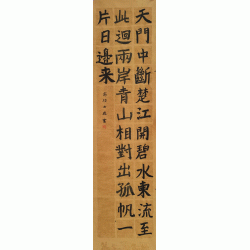 天門中斷楚江開碧水東流至
此迴兩岸青山相對出孤帆一
片日邊来